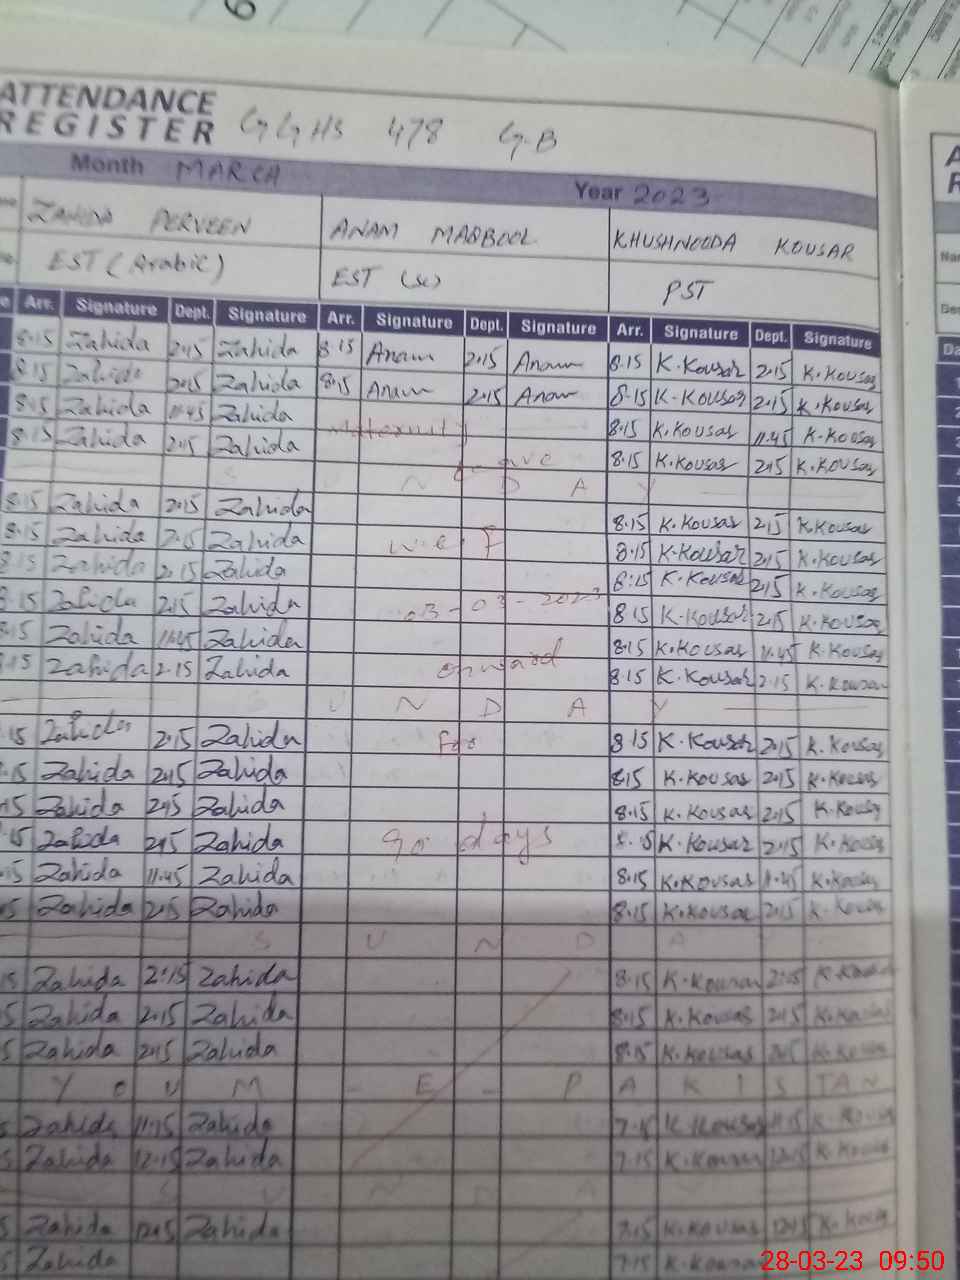 ATTENDANCE
REGISTER GGHS 478 G.B
Month MARCH Year 2023
ZAHIDA PERVEEN ANAM MAQBOOL KHUSHNOODA KOUSAR
EST (Arabic) EST (Sc) PST
Arr. Signature Dept. Signature Arr. Signature Dept. Signature Arr. Signature Dept. Signature
8.15 Zahida 2.15 Zahida 8.15 Anam 2.15 Anam 8.15 K.Kousar 2.15 K.Kousar
8.15 Zahida 2.15 Zahida 8.15 Anam 2.15 Anam 8.15 K.Kousar 2.15 K.Kousar
8.15 Zahida 11.45 Zahida Maternity 8.15 K.Kousar 11.45 K.Kousar
8.15 Zahida 2.15 Zahida Leave 8.15 K.Kousar 2.15 K.Kousar
S U N D A Y
8.15 Zahida 2.15 Zahida 8.15 K.Kousar 2.15 K.Kousar
8.15 Zahida 2.15 Zahida w.e.f 8.15 K.Kousar 2.15 K.Kousar
8.15 Zahida 2.15 Zahida 8.15 K.Kousar 2.15 K.Kousar
8.15 Zahida 2.15 Zahida 03-03-2023 8.15 K.Kousar 2.15 K.Kousar
8.15 Zahida 11.45 Zahida 8.15 K.Kousar 11.45 K.Kousar
8.15 Zahida 2.15 Zahida onward 8.15 K.Kousar 2.15 K.Kousar
S U N D A Y
15 Zahida 2.15 Zahida for 8.15 K.Kousar 2.15 K.Kousar
15 Zahida 2.15 Zahida 8.15 K.Kousar 2.15 K.Kousar
15 Zahida 2.15 Zahida 8.15 K.Kousar 2.15 K.Kousar
15 Zahida 2.15 Zahida 90 days 8.15 K.Kousar 2.15 K.Kousar
15 Zahida 11.45 Zahida 8.15 K.Kousar 11.45 K.Kousar
5 Zahida 2.15 Zahida 8.15 K.Kousar 2.15 K.Kousar
S U N D A
5 Zahida 2:15 Zahida 8.15 K.Kousar 2.15 K.Kousar
5 Zahida 2.15 Zahida 8.15 K.Kousar 2.15 K.Kousar
5 Zahida 2.15 Zahida 8.15 K.Kousar 2.15 K.Kousar
Y O U M - E - P A K I S TAN
5 Zahida 11.15 Zahida 7.15 K.Kousar 11.15 K.Kousar
5 Zahida 12.15 Zahida 7.15 K.Kousar 12.15 K.Kousar
S U N D A
5 Zahida 12.15 Zahida 7.15 K.Kousar 12.15 K.Kousar
5 Zahida 7.15 K.Kousar
28-03-23 09:50